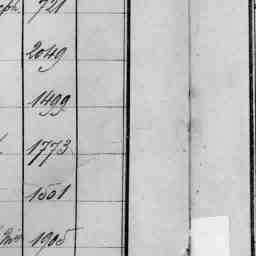 721
2049
1499
1773
1501
1905